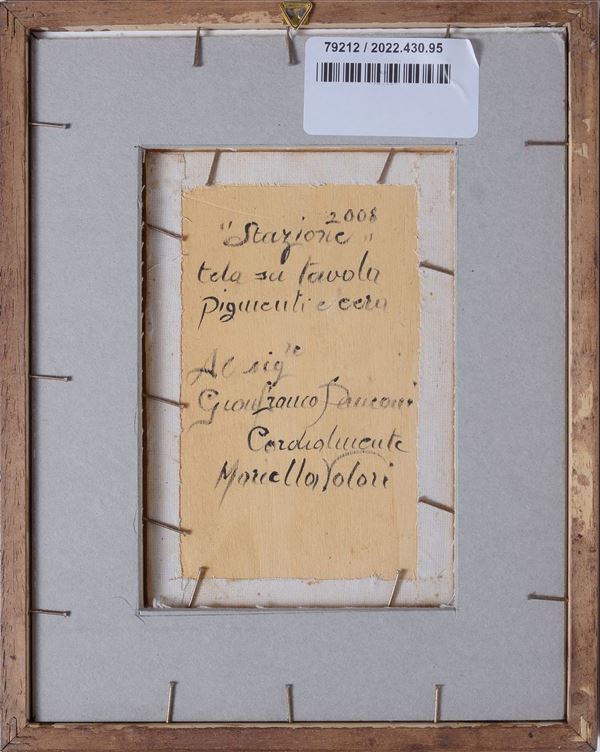 79212 / 2022.430.95
2008
"Stazione"
tela su tavola
pigmenti e cera
Al sigre
Gianfranco
Cordialmente
Marcella